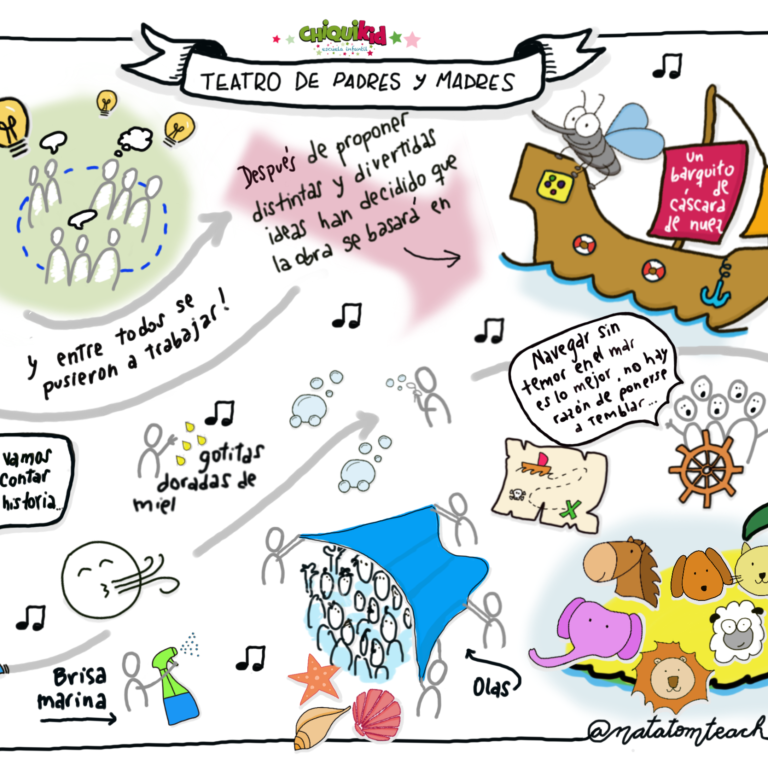 CHIQUIKID
escuela infantil
TEATRO DE PADRES Y MADRES
Después de proponer
distintas y divertidas
ideas han decidido que
la obra se basará en
Un
barquito
de
cáscara
de nuez
y entre todos se
pusieron a trabajar!
Navegar sin
temor en el mar
es lo mejor, no hay
razón de ponerse
a temblar...
vamos
contar
historia...
gotitas
doradas de
miel
Brisa
marina
Olas
@natatomteach